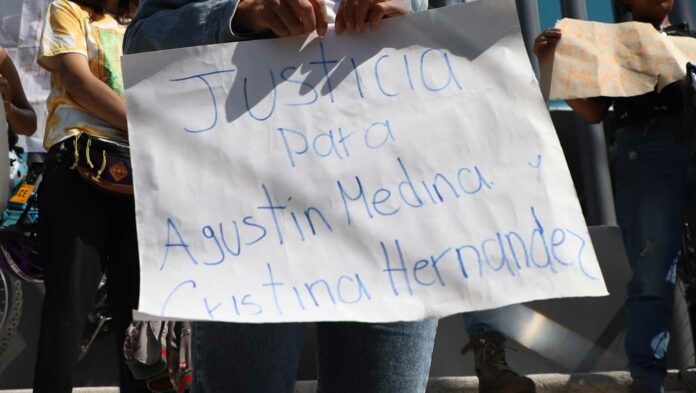 Justicia
para
Agustín Medina y
Cristina Hernandez